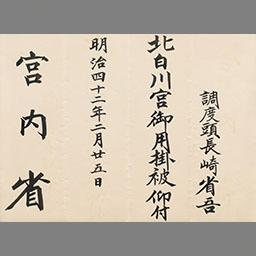 調度頭長崎省吾
北白川宮御用掛被仰付
明治四十二年二月廿五日
宮内省